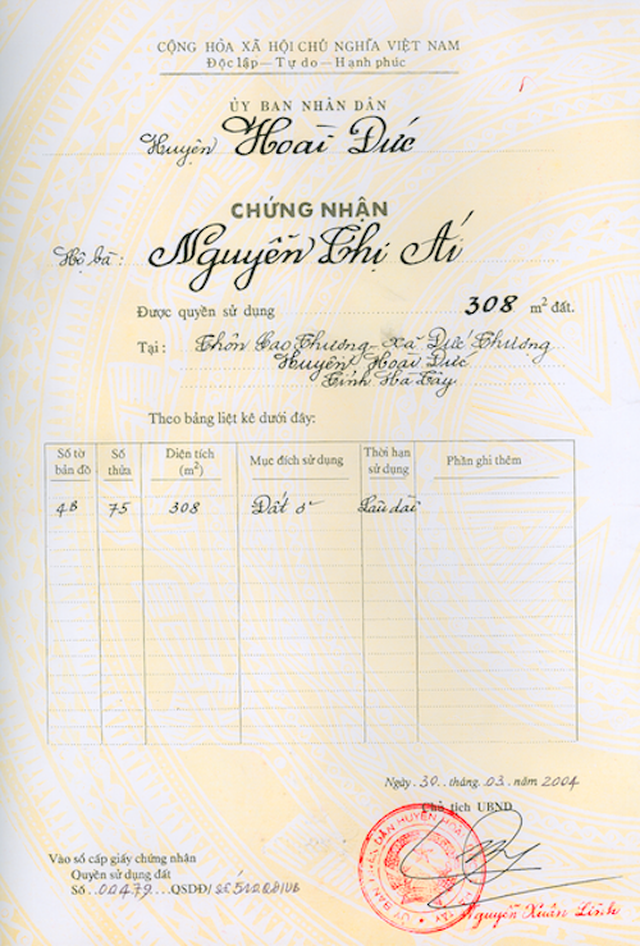 CỘNG HÒA XÃ HỘI CHỦ NGHĨA VIỆT NAM
Độc lập — Tự do — Hạnh phúc
ỦY BAN NHÂN DÂN
Huyện Hoài Đức
CHỨNG NHẬN
Hộ bà: Nguyễn Thị Ái
Được quyền sử dụng 308 m² đất.
Tại: Thôn Cao Thượng - Xã Đức Thượng
Huyện Hoài Đức
Tỉnh Hà Tây
Theo bảng liệt kê dưới đây:
Số tờ bản đồ Số thửa Diện tích (m²) Mục đích sử dụng Thời hạn sử dụng Phần ghi thêm
4B 75 308 Đất ở Lâu dài
Ngày 30 tháng 03 năm 2004
Chủ tịch UBND
Vào sổ cấp giấy chứng nhận
Quyền sử dụng đất
Số 00479 QSDĐ/
Nguyễn Xuân Linh